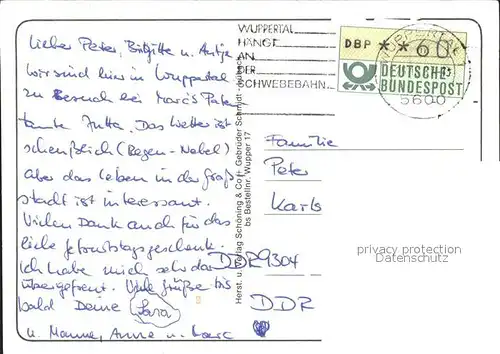 Lieber Peter, Birgitte u. Antje
wir sind hier in Wuppertal
zu Besuch bei Marc's Paten
tante Jutta. Das Wetter ist
scheußlich (Regen-Nebel)
aber das Leben in der Groß
stadt ist interessant.
Vielen Dank auch für das
liebe Geburtstagsgeschenk.
Ich habe mich sehr da
übergefreut. Viele Grüße bis
bald Deine Sara
u. Manne, Anne u. Marc
WUPPERTAL
HÄNGT
AN
DER
SCHWEBEBAHN
DBP **60
DEUTSCHE
BUNDESPOST
WUPPERTAL
5600
Herst. u. Verlag Schöning & Co + Gebrüder Schmidt
bs Bestellnr. Wupper 17
Familie
Peter
Karls
DDR 9304
DDR
privacy protection
Datenschutz